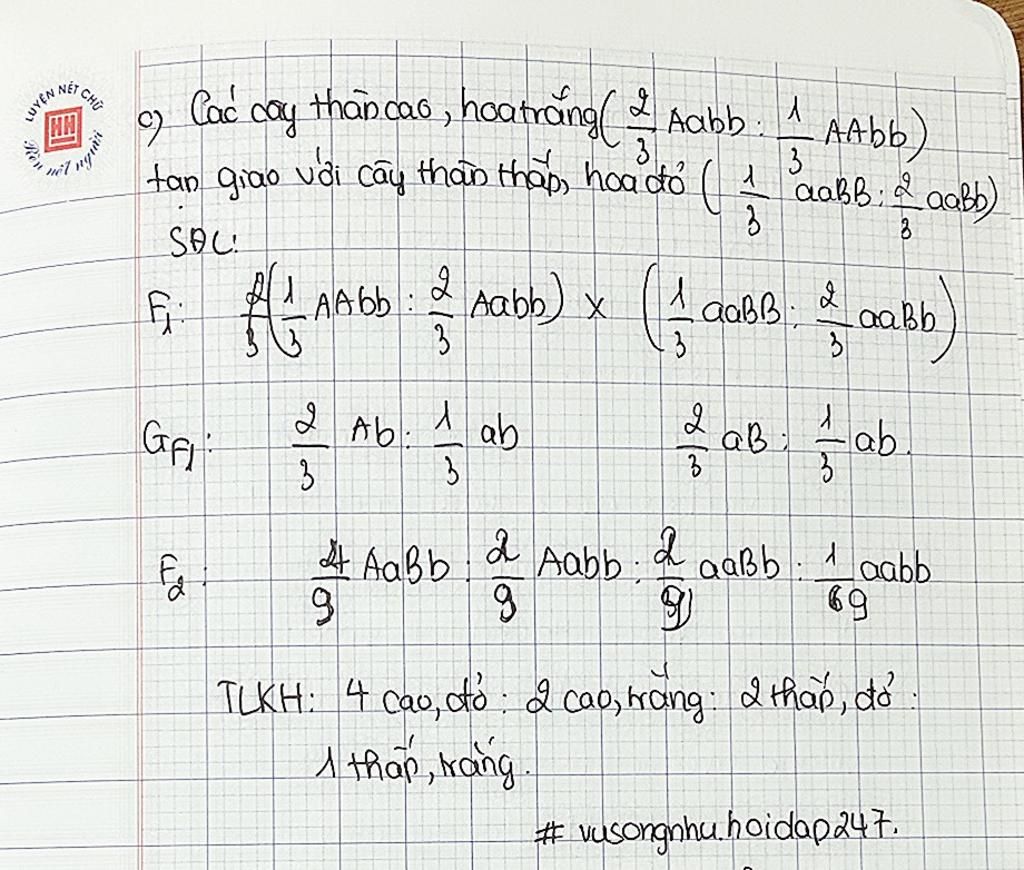 LUYỆN NÉT CHỮ
Rèn nết người
c) Các cây thân cao, hoa trắng (2/3 Aabb : 1/3 AAbb)
tạp giao với cây thân thấp, hoa đỏ (1/3 aaBB : 2/3 aaBb)
SĐL:
F1: (1/3 AAbb : 2/3 Aabb) x (1/3 aaBB : 2/3 aaBb)
GF1: 2/3 Ab : 1/3 ab 2/3 aB : 1/3 ab.
F2: 4/9 AaBb : 2/9 Aabb : 2/9 aaBb : 1/9 aabb
TLKH: 4 cao, đỏ : 2 cao, trắng : 2 thấp, đỏ :
1 thấp, trắng.
# vusongnhu.hoidap247.